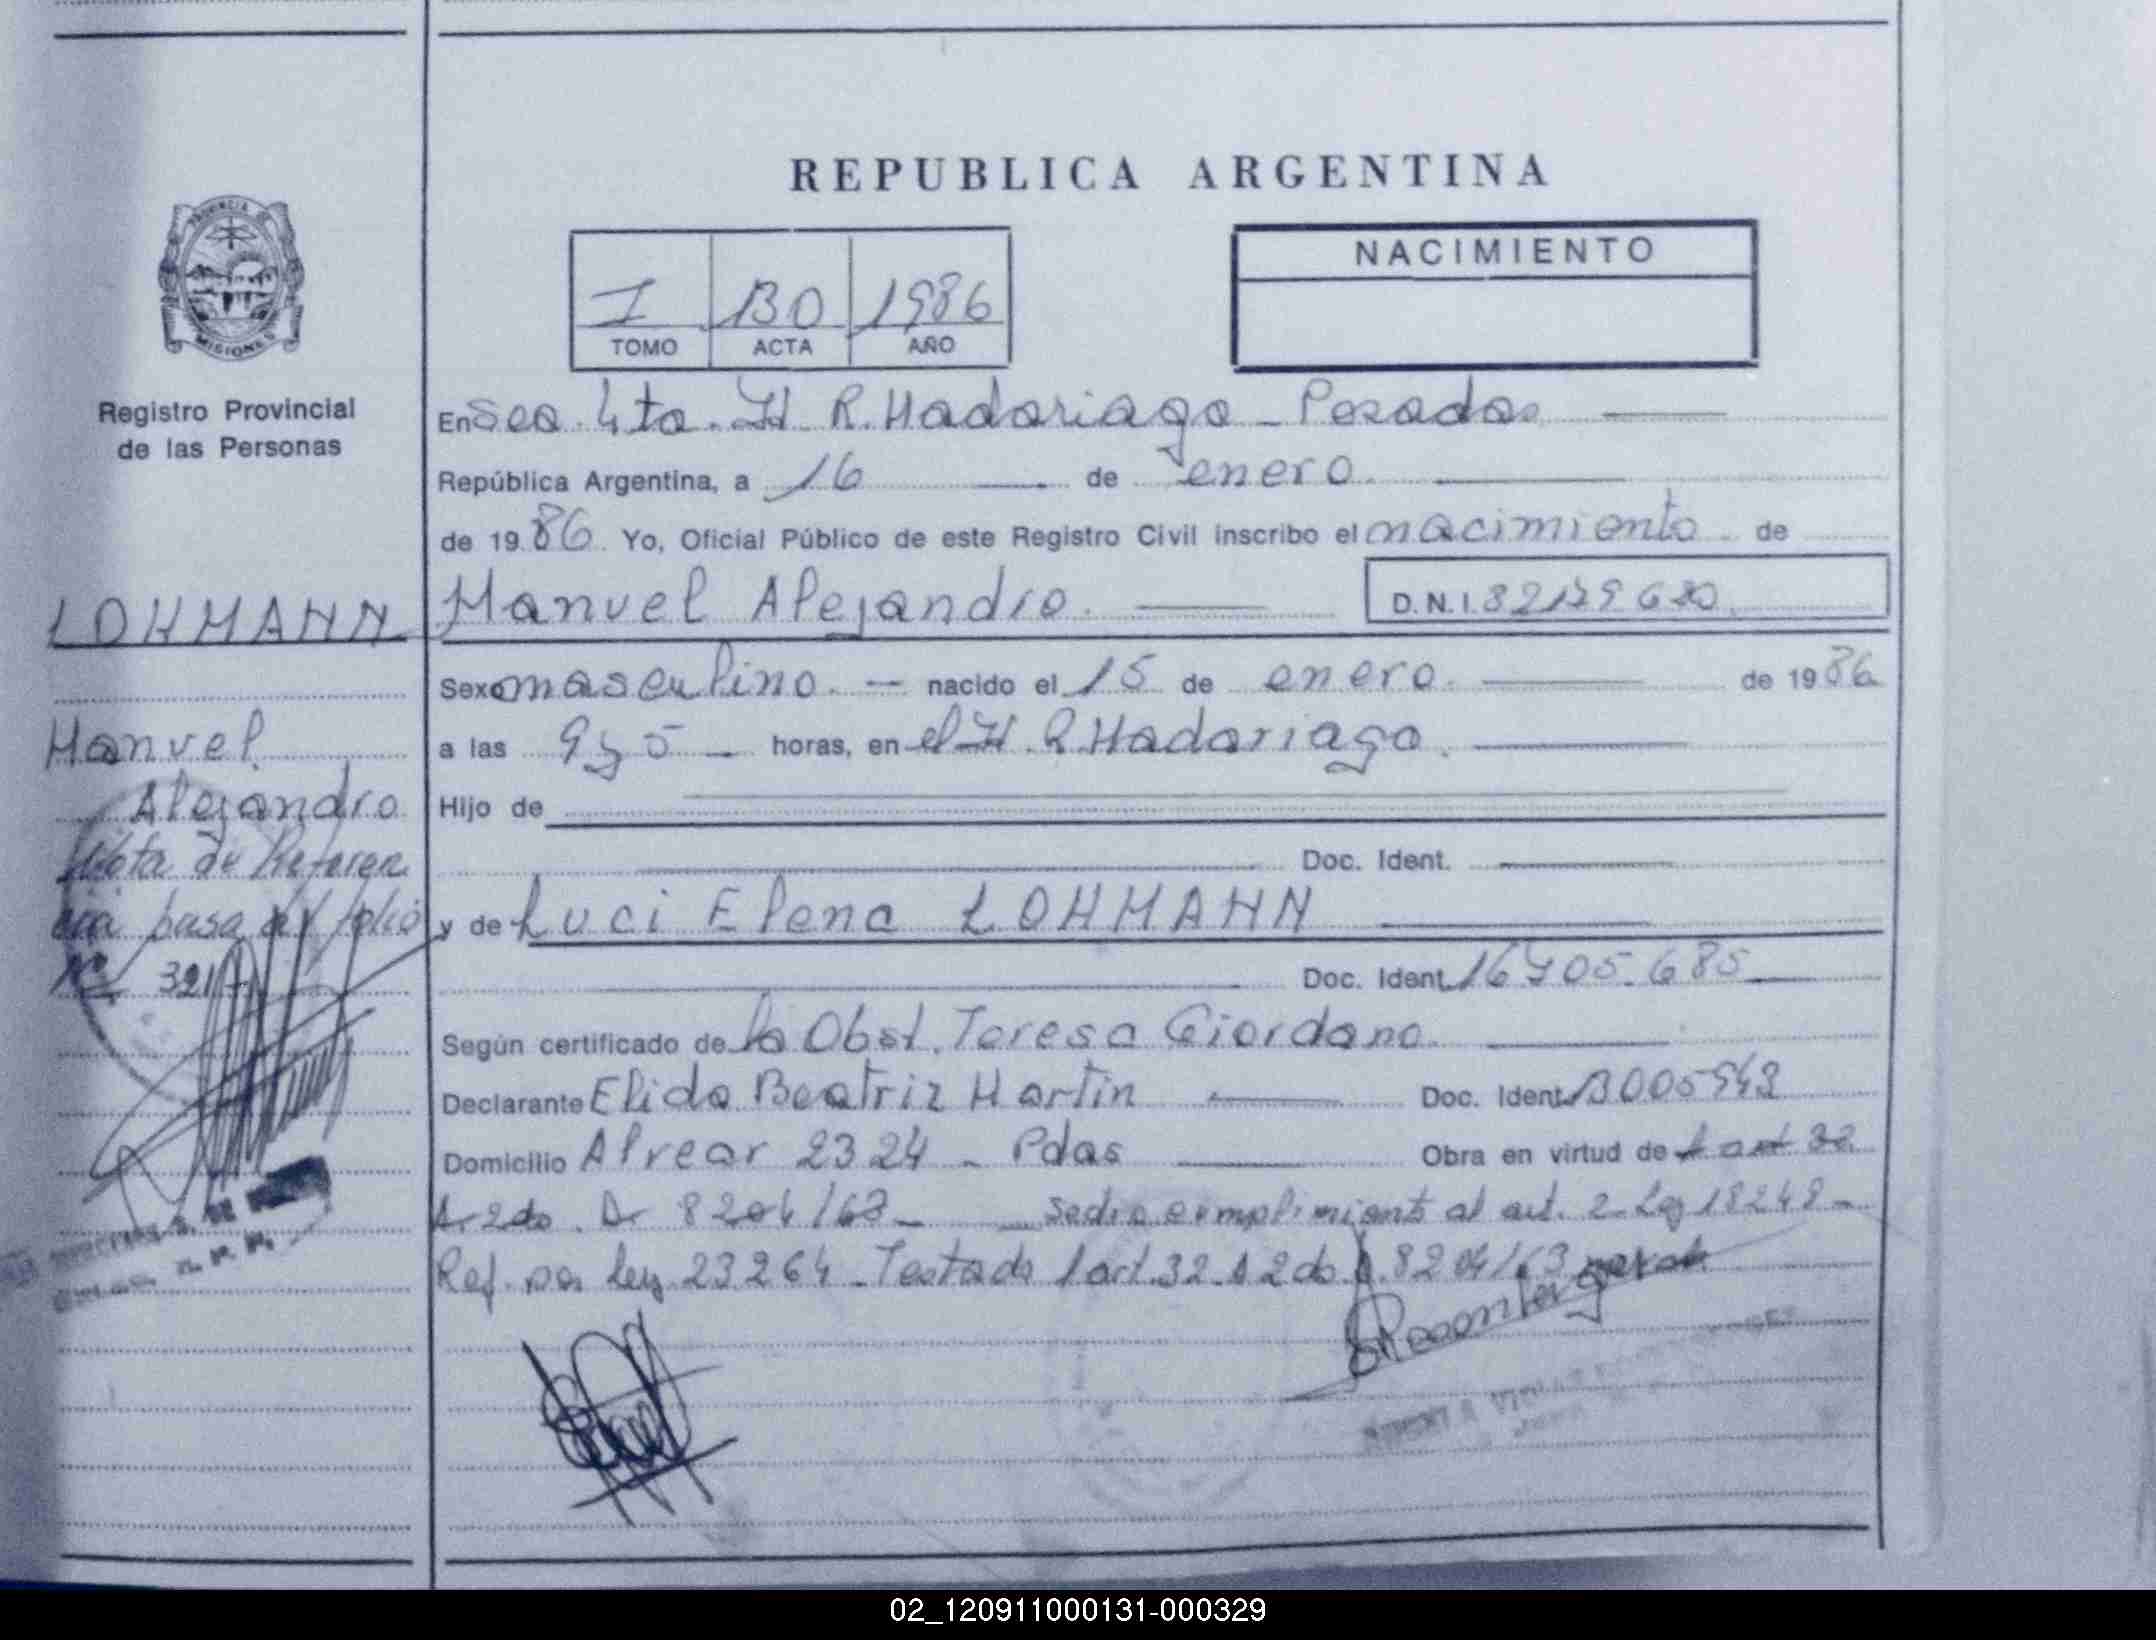 REPUBLICA ARGENTINA
PROVINCIA DE
MISIONES
Registro Provincial
de las Personas
I 130 1986
TOMO ACTA AÑO
NACIMIENTO
En Sec. 4ta. H R. Madariaga - Posadas
República Argentina, a 16 de enero.
de 19 86. Yo, Oficial Público de este Registro Civil inscribo el nacimiento de
LOHMANN
Manuel Alejandro. D.N.I.
Sexo masculino. nacido el 15 de enero. de 19 86
Manuel
a las 9 y 5 horas, en el H. R. Madariaga.
Alejandro
Hijo de
Nota de Referen
cia pasa al folio
Nº 321
Doc. Ident.
y de Luci Elena LOHMANN
Doc. Ident. 685
Según certificado de la Obst. Teresa Giordano.
Declarante Elida Beatriz Martin Doc. Ident.
Domicilio Alvear 2324 - Pdas Obra en virtud de l art 32
A 2do. D 8204/63 - Se dio cumplimiento al art. 2 Ley 18248 -
Ref. por Ley 23264 - Testado l art. 32 A 2do D. 8204/63
02_120911000131-000329